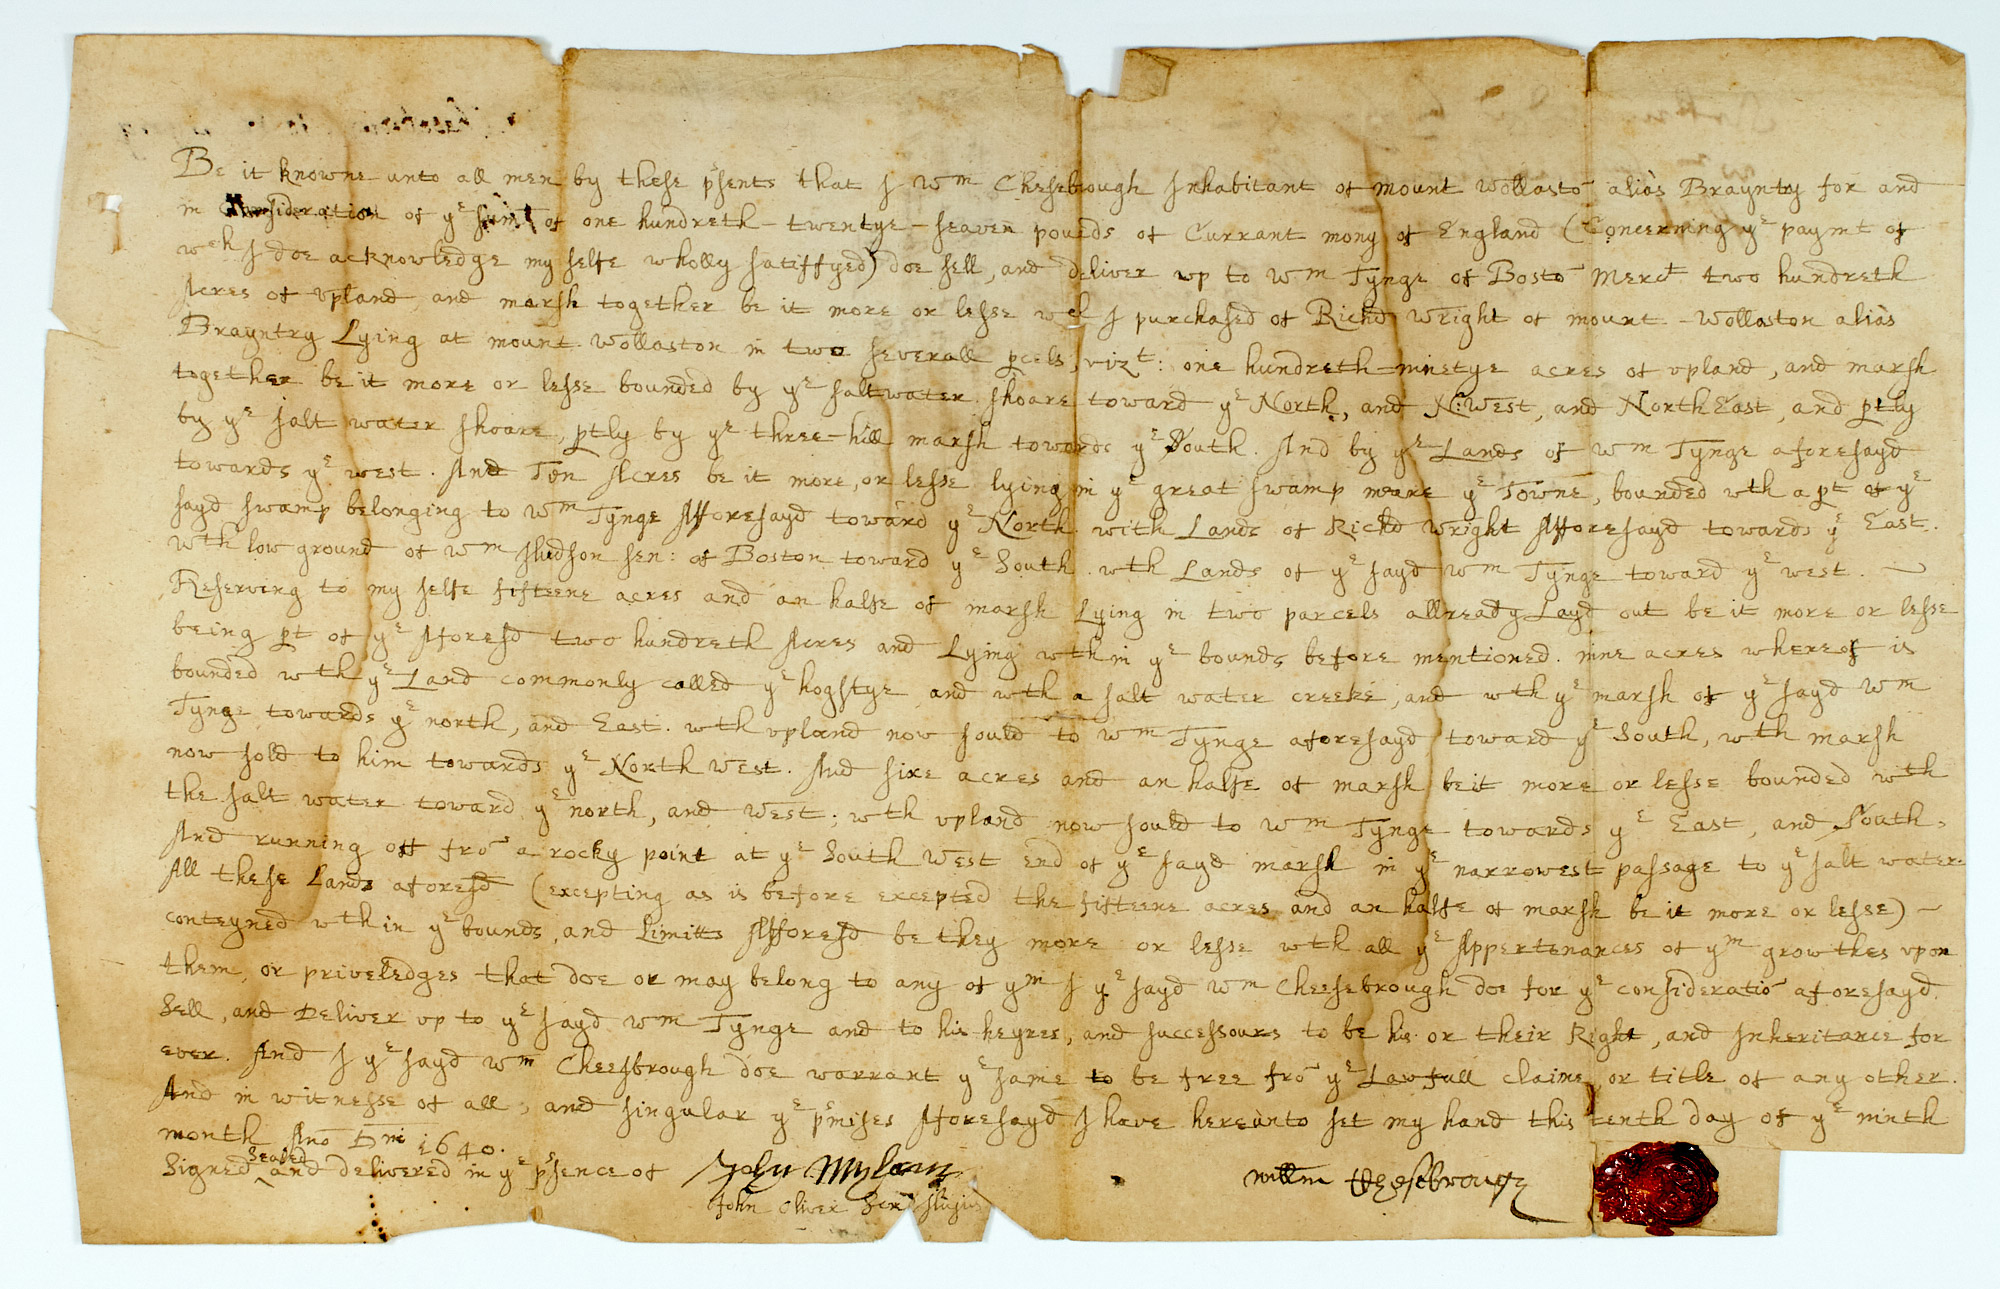 Be it knowne unto all men by these psents that I Wm Chesebrough Inhabitant of mount Wollasto alias Brayntry for and
in Consideration of ye sum of one hundreth-twentye-seaven pounds of Currant mony of England (Concerning ye paymt of
wch I doe acknowledge my selfe wholly satiffyed) doe sell, and deliver up to Wm Tynge of Bosto Merct two hundreth
Acres of upland, and marsh together be it more or lesse wch I purchased of Richd Wright of mount-Wollaston alias
Brayntry Lying at mount Wollaston in two severall pcels, vizt: one hundreth-ninetye acres of upland, and marsh
together be it more or lesse bounded by ye salt water shoare toward ye North, and N:West, and North East, and ptly
by ye salt water shoare, ptly by ye three-hill marsh towards ye South. And by ye Lands of Wm Tynge aforesayd
towards ye west. And Ten Acres be it more, or lesse lying in ye great swamp neare ye Towne, bounded wth a pt of ye
sayd swamp belonging to Wm Tynge Afforesayd toward ye North. with Lands of Richd Wright Afforesayd towards ye East.
wth low ground of Wm Hudson sen: of Boston toward ye South. wth Lands of ye sayd Wm Tynge toward ye west.
Reserving to my selfe fifteene acres and an halfe of marsh Lying in two parcels allready Layd out be it more or lesse
being pt of ye Aforesd two hundreth Acres and Lying wthin ye bounds before mentioned. nine acres whereof is
bounded wth ye Land commonly called ye hogstye and wth a salt water creeke, and wth ye marsh of ye sayd Wm
Tynge towards ye north, and East. wth upland now sould to Wm Tynge aforesayd toward ye South, wth marsh
now sold to him towards ye North west. And sixe acres and an halfe of marsh be it more or lesse bounded wth
the salt water toward ye north, and West; wth upland now sould to Wm Tynge towards ye East, and South,
And running off fro a rocky point at ye South West end of ye sayd marsh in ye narrowest passage to ye salt water.
All these Lands aforesd (excepting as is before excepted the fifteene acres and an halfe of marsh be it more or lesse)
conteyned wthin ye bounds, and Limitts Afforesd be they more or lesse wth all ye Appertenances of ym growthes upon
them, or priveledges that doe or may belong to any of ym I ye sayd Wm Cheesebrough doe for ye consideratio aforesayd
Sell, and Deliver up to ye sayd Wm Tynge and to his heyres, and successours to be his or their Right, and Inheritance for
ever. And I ye sayd Wm Cheesbrough doe warrant ye same to be free fro ye Lawfull claime, or title of any other.
And in witnesse of all, and singular ye pmises Aforesayd I have hereunto set my hand this tenth day of ye ninth
month Ano Dni 1640.
Signed Sealed and delivered in ye psence of
John Mylam
John Oliver
willm Chesebrough